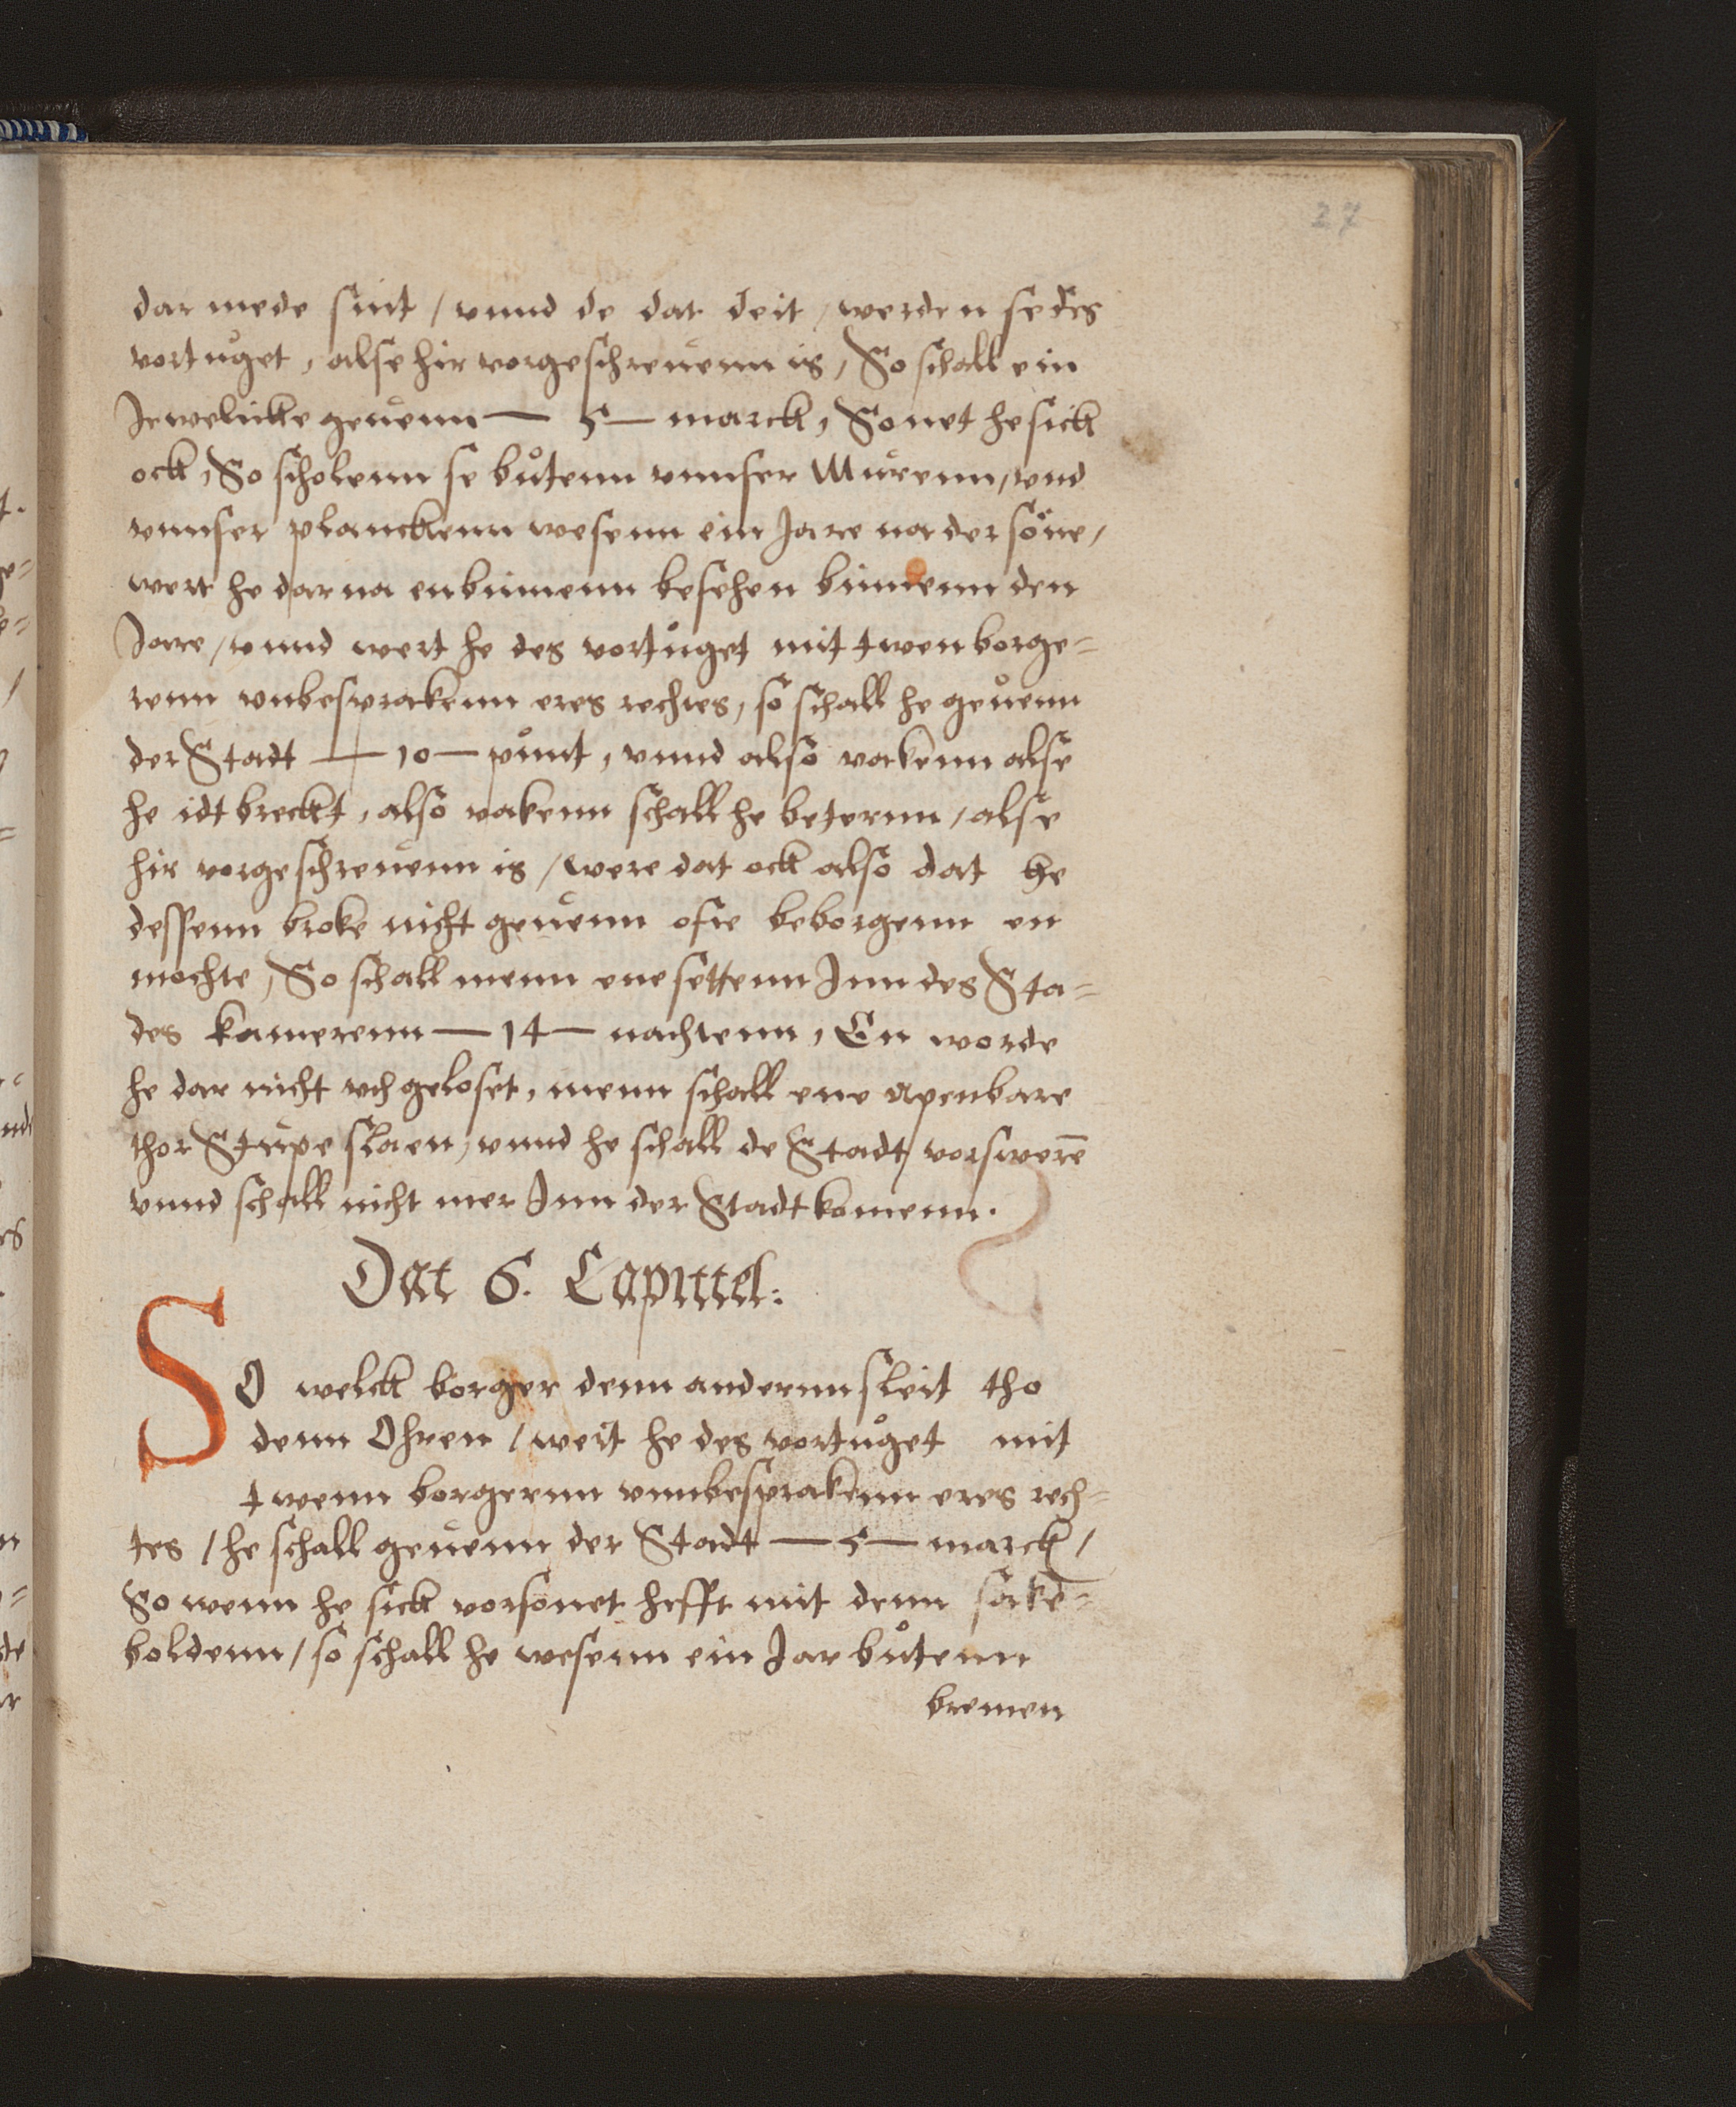 27
dar mede sint / vnnd de dat deit / werden se des
vortůget, alse hir vorgeschreuenn is, So schall ein
Jewelicke geuenn — 5 — marck, Sonet he sick
ock, So scholenn se bůtenn vnnser Mŭrenn, vnd
vnnser planckenn wesenn ein Jare na der söne,
wert he dar na enbinnenn besehen binnenn den
Jare, vnnd wert he des vortůget mit twen borge=
renn vnbesprakenn eres rechtes, so schall he geuenn
der Stadt — 10 — pŭnt, vnnd also vakenn alse
he idt breckt, also vakenn schall he beterenn, alse
hir vorgeschreuenn is / were dat ock also dat he
dessenn broke nicht geuenn ofte beborgenn en
mochte, So schall menn ene settenn Inn des Sta=
des kamerenn — 14 — nachtenn, En worde
he dar nicht vth geloset, menn schall ene apenbare
thor Stŭpe slaen, vnnd he schall de Stadt vorswerē
vnnd schall nicht mer Inn der Stadt komenn.
Dat 6. Capittel:
SO welck borger denn anderenn sleit tho
denn Ohren / wert he des vortůget mit
twenn borgerenn vnnbesprakenn eres rech=
tes / he schall geuenn der Stadt — 5 — marck /
So wenn he sick vorsonet hefft mit denn sake=
boldenn / so schall he wesenn ein Jar bůtenn
bremen